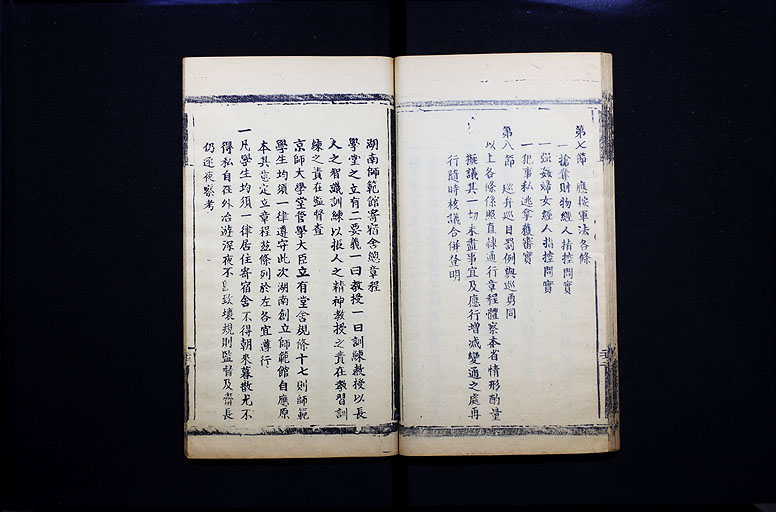 第七節　應按軍法各條
一搶奪財物經人指控問實
一強姦婦女經人指控問實
一犯事私逃拿獲審實
第八節　巡弁巡目罰例與巡勇同
以上各條係照直隸通行章程體察本省情形酌量
擬議其一切未盡事宜及應行增減變通之處再
行隨時核議合併登明
湖南師範館寄宿舍總章程
學堂之立有二要義一曰教授一曰訓練教授以長
人之智識訓練以振人之精神教授之責在教習訓
練之責在監督查
京師大學堂管學大臣立有堂舍規條十七則師範
學生均須一律遵守此次湖南創立師範館自應原
本其意定立章程茲條列於左各宜遵行
一凡學生均須一律居住寄宿舍不得朝來暮散尤不
得私自在外冶遊深夜不歸致壞規則監督及齋長
仍逐夜察考